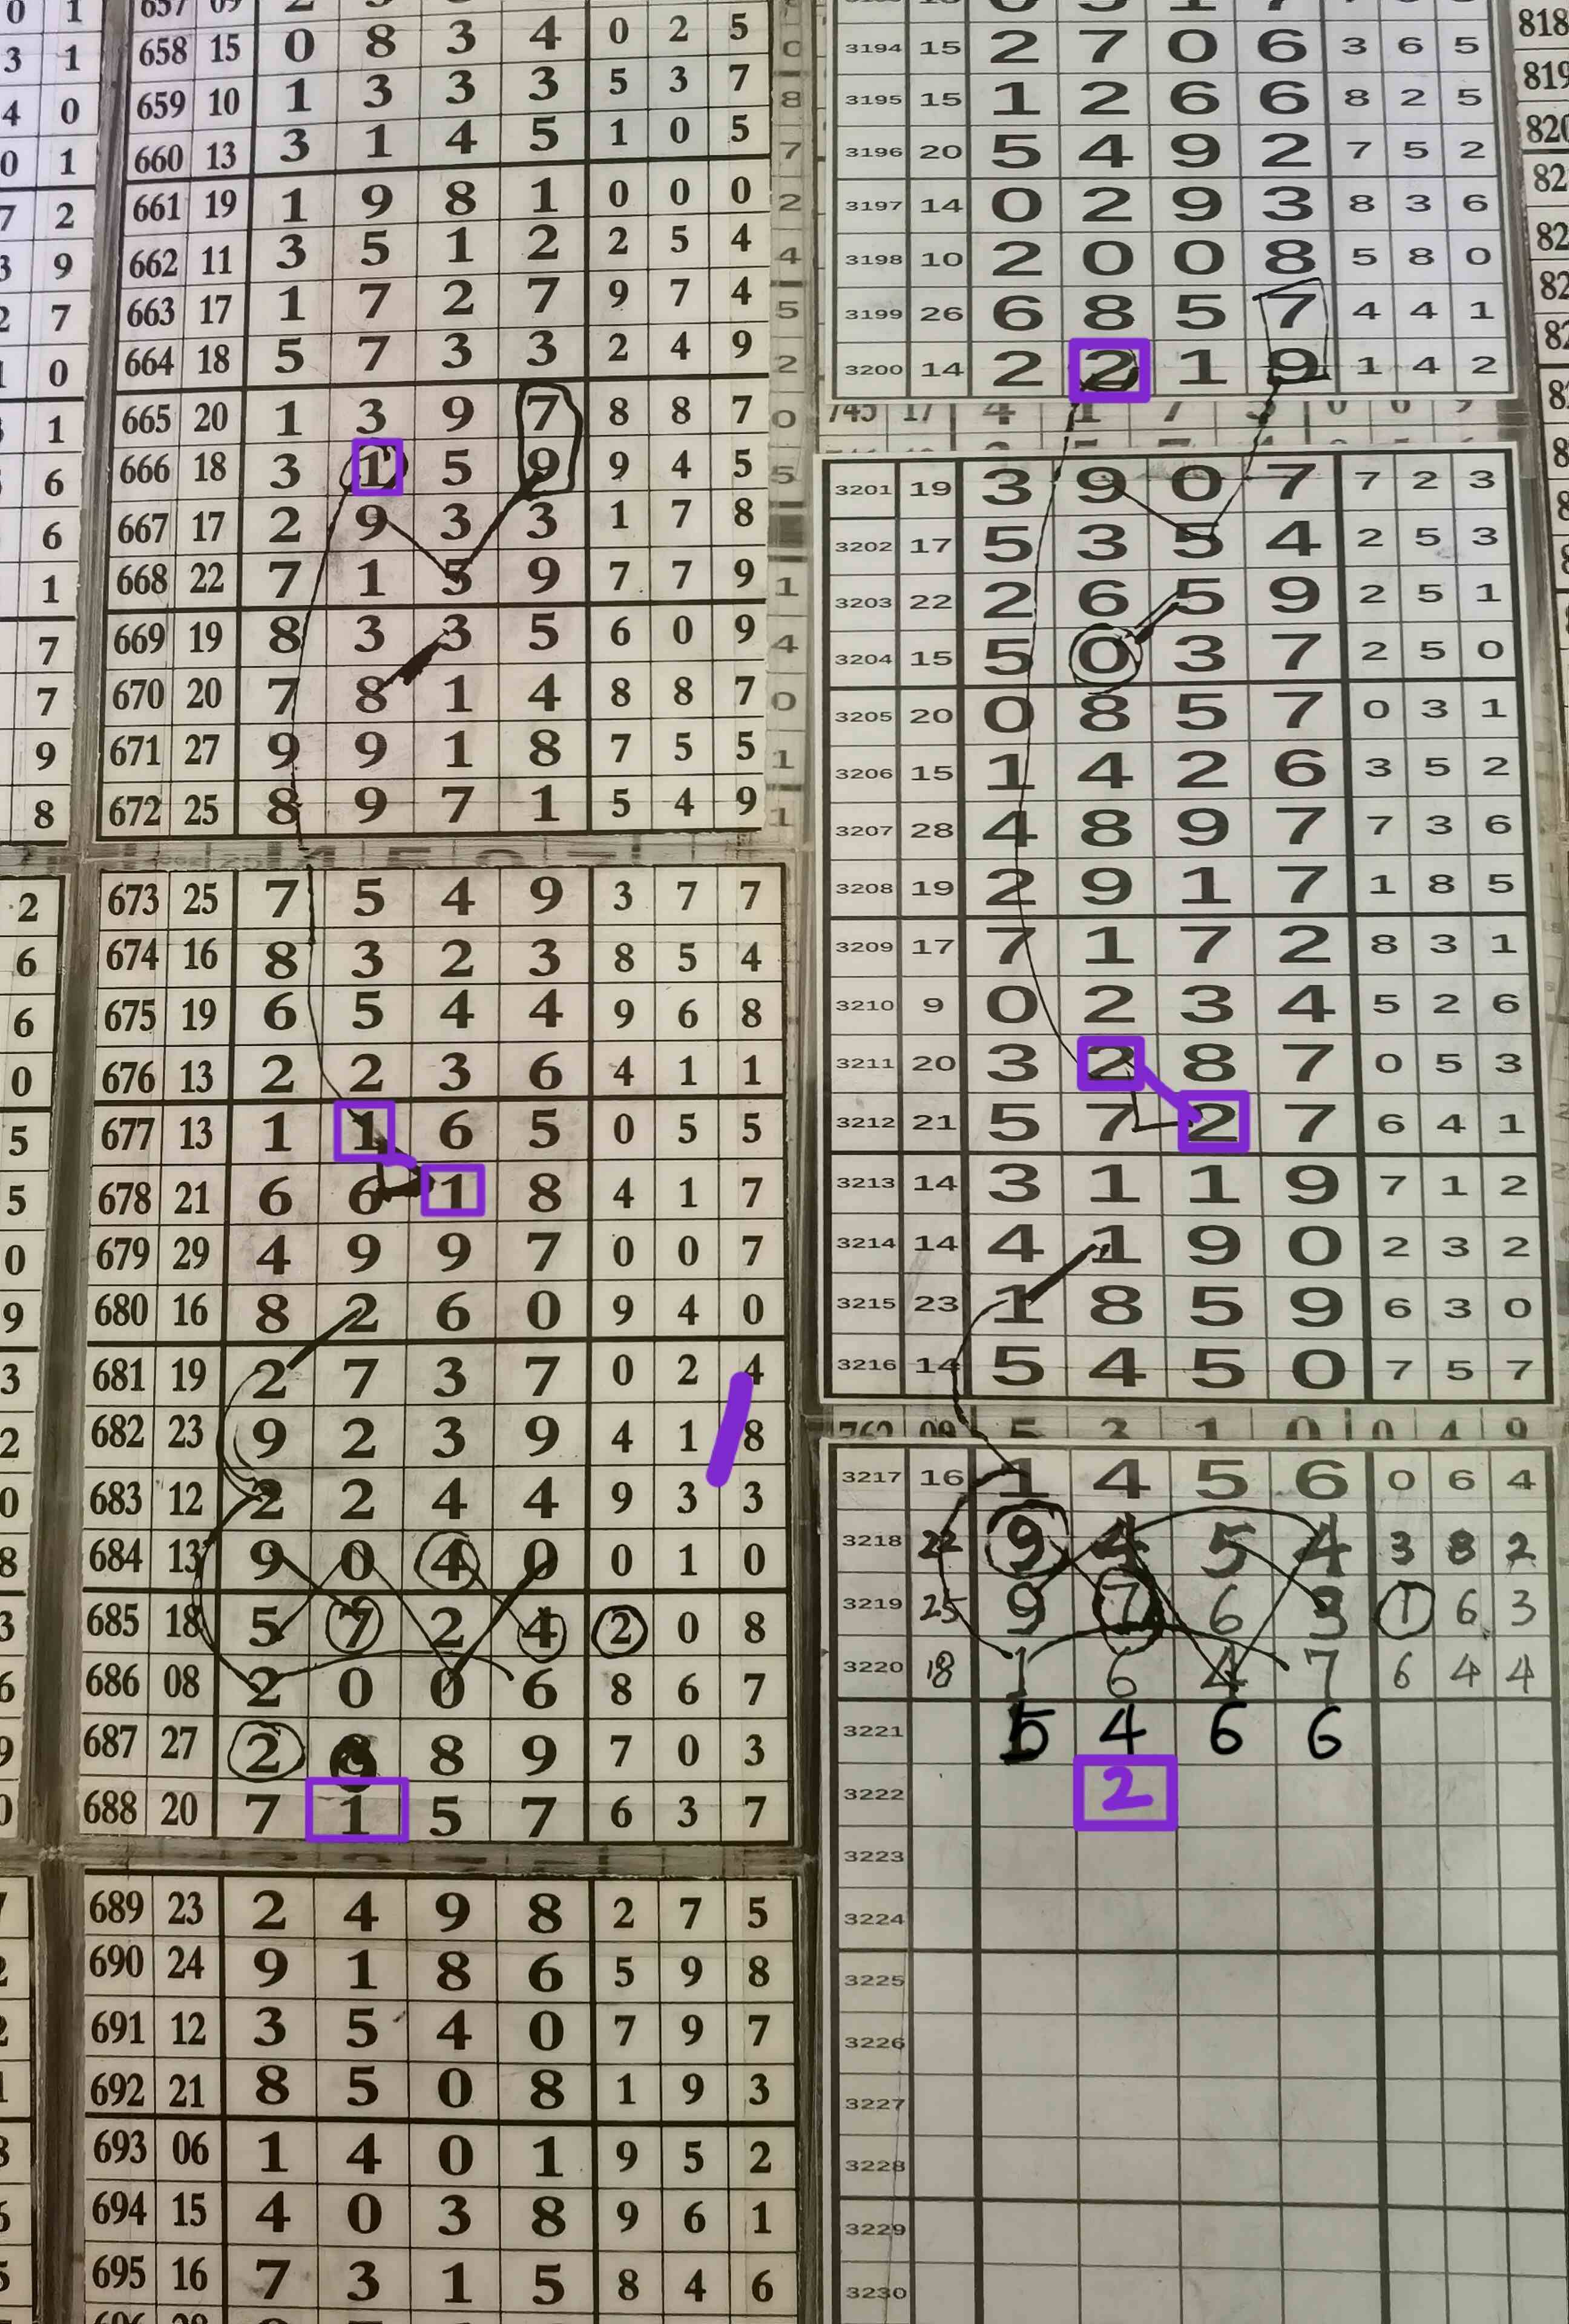 658 15 0 8 3 4 0 2 5
659 10 1 3 3 3 5 3 7
660 13 3 1 4 5 1 0 5
661 19 1 9 8 1 0 0 0
662 11 3 5 1 2 2 5 4
663 17 1 7 2 7 9 7 4
664 18 5 7 3 3 2 4 9
665 20 1 3 9 7 8 8 7
666 18 3 1 5 9 9 4 5
667 17 2 9 3 3 1 7 8
668 22 7 1 5 9 7 7 9
669 19 8 3 3 5 6 0 9
670 20 7 8 1 4 8 8 7
671 27 9 9 1 8 7 5 5
672 25 8 9 7 1 5 4 9
673 25 7 5 4 9 3 7 7
674 16 8 3 2 3 8 5 4
675 19 6 5 4 4 9 6 8
676 13 2 2 3 6 4 1 1
677 13 1 1 6 5 0 5 5
678 21 6 6 1 8 4 1 7
679 29 4 9 9 7 0 0 7
680 16 8 2 6 0 9 4 0
681 19 2 7 3 7 0 2 4
682 23 9 2 3 9 4 1 8
683 12 2 2 4 4 9 3 3
684 13 9 0 4 0 0 1 0
685 18 5 7 2 4 2 0 8
686 08 2 0 0 6 8 6 7
687 27 2 8 8 9 7 0 3
688 20 7 1 5 7 6 3 7
689 23 2 4 9 8 2 7 5
690 24 9 1 8 6 5 9 8
691 12 3 5 4 0 7 9 7
692 21 8 5 0 8 1 9 3
693 06 1 4 0 1 9 5 2
694 15 4 0 3 8 9 6 1
695 16 7 3 1 5 8 4 6
3194 15 2 7 0 6 3 6 5
3195 15 1 2 6 6 8 2 5
3196 20 5 4 9 2 7 5 2
3197 14 0 2 9 3 8 3 6
3198 10 2 0 0 8 5 8 0
3199 26 6 8 5 7 4 4 1
3200 14 2 2 1 9 1 4 2
3201 19 3 9 0 7 7 2 3
3202 17 5 3 5 4 2 5 3
3203 22 2 6 5 9 2 5 1
3204 15 5 0 3 7 2 5 0
3205 20 0 8 5 7 0 3 1
3206 15 1 4 2 6 3 5 2
3207 28 4 8 9 7 7 3 6
3208 19 2 9 1 7 1 8 5
3209 17 7 1 7 2 8 3 1
3210 9 0 2 3 4 5 2 6
3211 20 3 2 8 7 0 5 3
3212 21 5 7 2 7 6 4 1
3213 14 3 1 1 9 7 1 2
3214 14 4 1 9 0 2 3 2
3215 23 1 8 5 9 6 3 0
3216 14 5 4 5 0 7 5 7
3217 16 1 4 5 6 0 6 4
3218 22 9 4 5 4 3 8 2
3219 25 9 7 6 3 1 6 3
3220 18 1 6 4 7 6 4 4
3221 5 4 6 6
3222 2
3223
3224
3225
3226
3227
3228
3229
3230